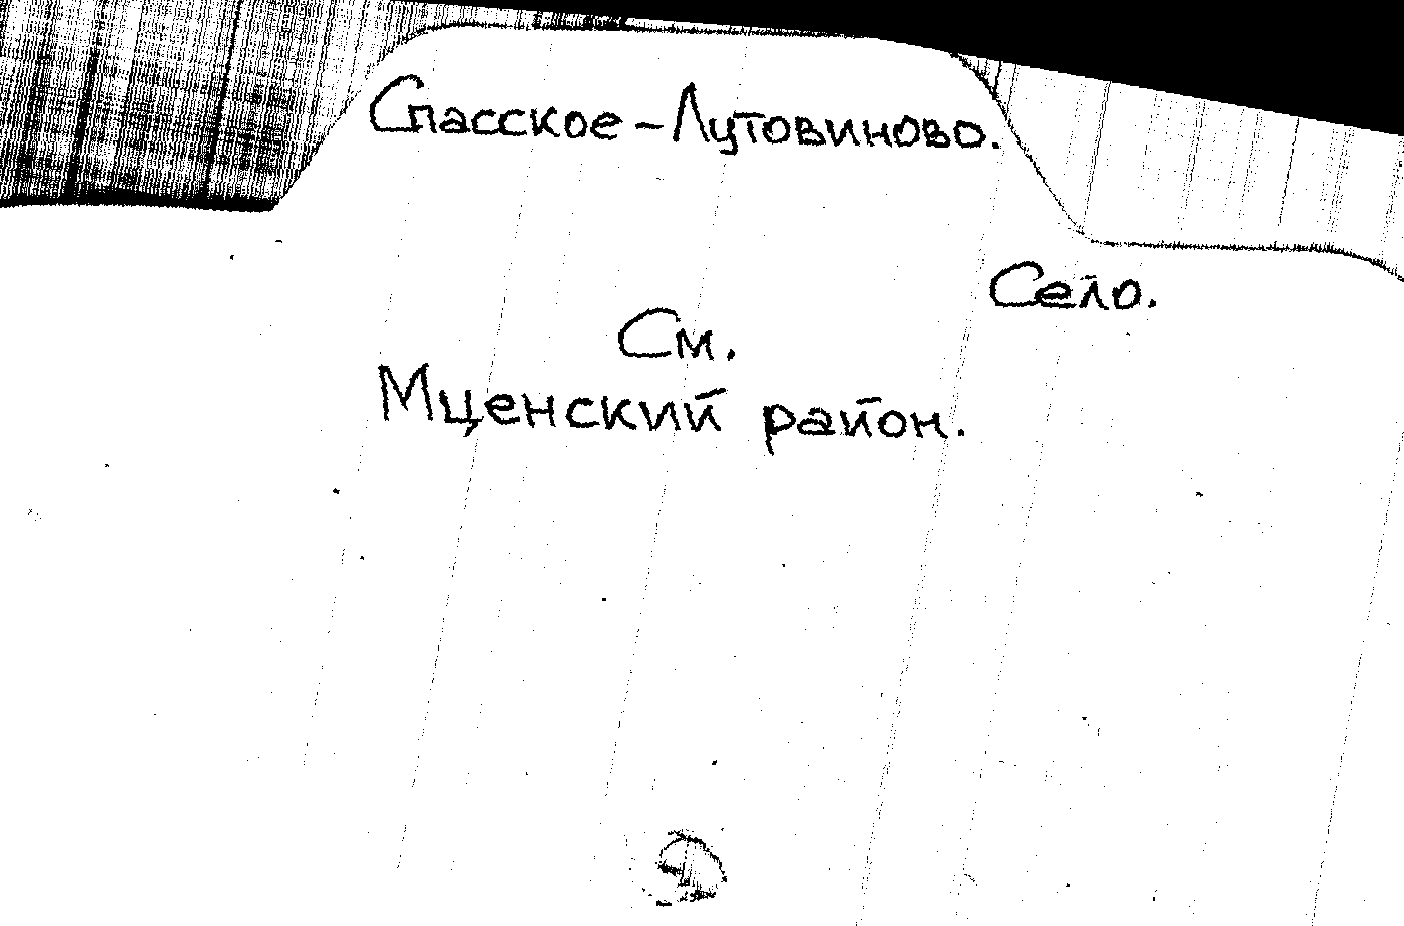 Спасское-Лутовиново.
Село.
См.
Мценский район.